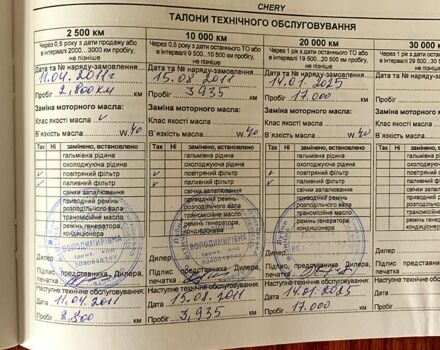 CHERY
ТАЛОНИ ТЕХНІЧНОГО ОБСЛУГОВУВАННЯ
2 500 КМ
Через 0,5 року з дати продажу або
в інтервалі 2000... 3000 км пробігу,
не пізніше
Дата та № наряду-замовлення
11.04.2011г
Пробіг 2.800 км
Заміна моторного масла:
Клас якості масла
В`язкість масла W 40
Так Ні замінено, встановлено
гальмівна рідина
охолоджуюча рідина
повітряний фільтр
паливний фільтр
свічки запалювання
приводний ремінь
розподільчого вала
трансмісійне масло
ремінь генератора,
кондиціонера
ВОЛОДИМИРІВНА
Дилер
Підпис представника Дилера,
печатка
Наступне технічне обслуговування:
Дата 11.04.2011
Пробіг 2.800 км
10 000 КМ
Через 0,5 року з дати останнього ТО або
в інтервалі 9 500...10 500 км пробігу,
не пізніше
Дата та № наряду-замовлення
15.08.2011
Пробіг 3.935 км
Заміна моторного масла:
Клас якості масла
В`язкість масла W 40
Так Ні замінено, встановлено
гальмівна рідина
охолоджуюча рідина
повітряний фільтр
паливний фільтр
свічки запалювання
приводний ремінь
розподільчого вала
трансмісійне масло
ремінь генератора,
кондиціонера
ВОЛОДИМИРІВНА
Дилер
Підпис представника Дилера,
Наступне технічне обслуговування:
Дата 15.08.2011
Пробіг 3,935 км
20 000 КМ
Через 1 рік з дати останнього ТО або
в інтервалі 19 500...20 500 км пробігу,
не пізніше
Дата та № наряду-замовлення
14.01.2025
Пробіг 17.000 км
Заміна моторного масла:
Клас якості масла
В`язкість масла W 40
Так Ні замінено, встановлено
гальмівна рідина
охолоджуюча рідина
повітряний фільтр
паливний фільтр
свічки запалювання
приводний ремінь
розподільчого вала
трансмісійне масло
ремінь генератора,
кондиціонера
Дилер
Підпис представника Дилера,
Наступне технічне обслуговування:
Дата 14.01.2025
Пробіг 17.000 км
30 000
Через 1 рік з дати
в інтервалі 29 500
не пізніше
Дата та № наряду
Пробіг
Заміна моторного
Клас якості масла
В`язкість масла
Так Ні
Дилер
Підпис
Наступне
Дата
Пробіг